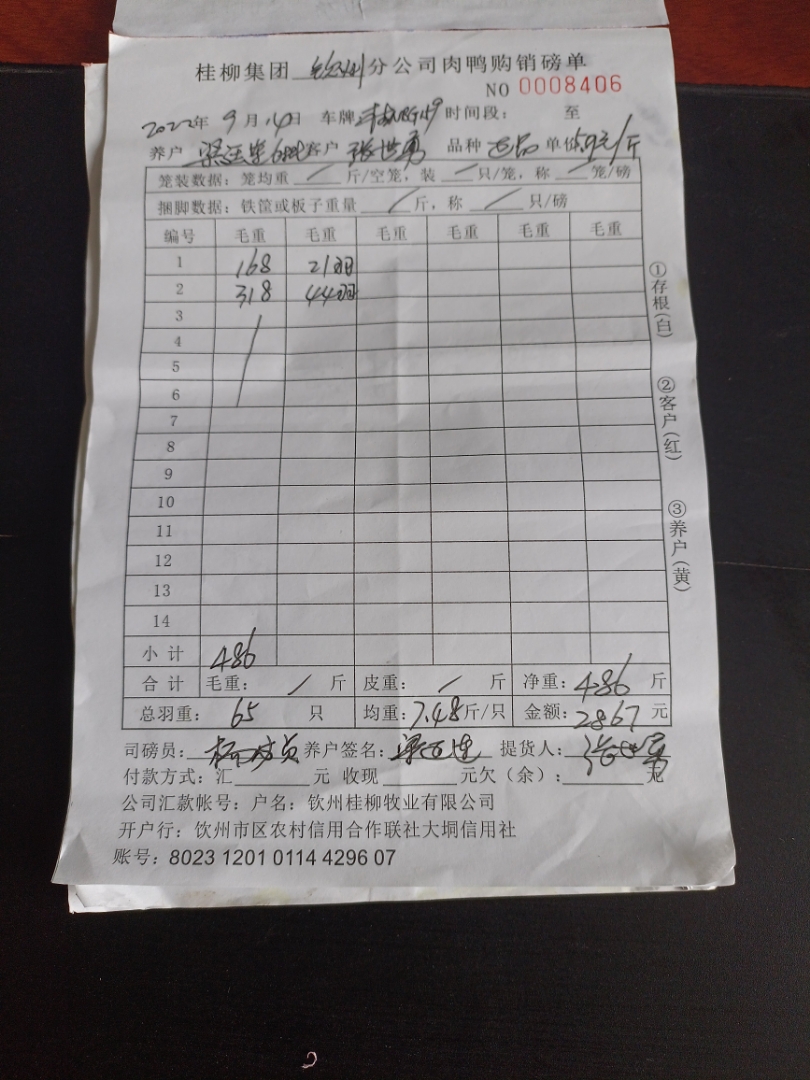 桂柳集团 钦州 分公司肉鸭购销磅单
NO 0008406
2022年 9 月 14日 车牌 时间段： 至
养户 客户 张世勇 品种 正品 单价 5.9元/斤
笼装数据：笼均重 / 斤/空笼，装 / 只/笼，称 / 笼/磅
捆脚数据：铁筐或板子重量 / 斤，称 / 只/磅
编号 毛重 毛重 毛重 毛重 毛重 毛重
1 168 21羽
2 318 44羽
3
4
5
6
7
8
9
10
11
12
13
14
小计 486
合计 毛重： / 斤 皮重： / 斤 净重：486 斤
总羽重： 65 只 均重：7.48斤/只 金额：2867 元
司磅员： 养户签名： 提货人：张世勇
付款方式：汇 元 收现 元欠（余）： 元
公司汇款帐号：户名：钦州桂柳牧业有限公司
开户行：钦州市区农村信用合作联社大垌信用社
账号：8023 1201 0114 4296 07
①存根（白）
②客户（红）
③养户（黄）